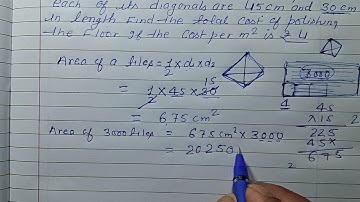 each of its diagonals are 45cm and 30 cm
in length find the total cost of polishing
the floor if the cost per m² is ₹ 4
Area of a tiles = 1/2 x d1 x d2
15
= 1/2 x 45 x 30
= 675 cm²
Area of 3000 tiles = 675 cm² x 3000
= 20250
3000
1
45
x15
2
225
45x
675
2